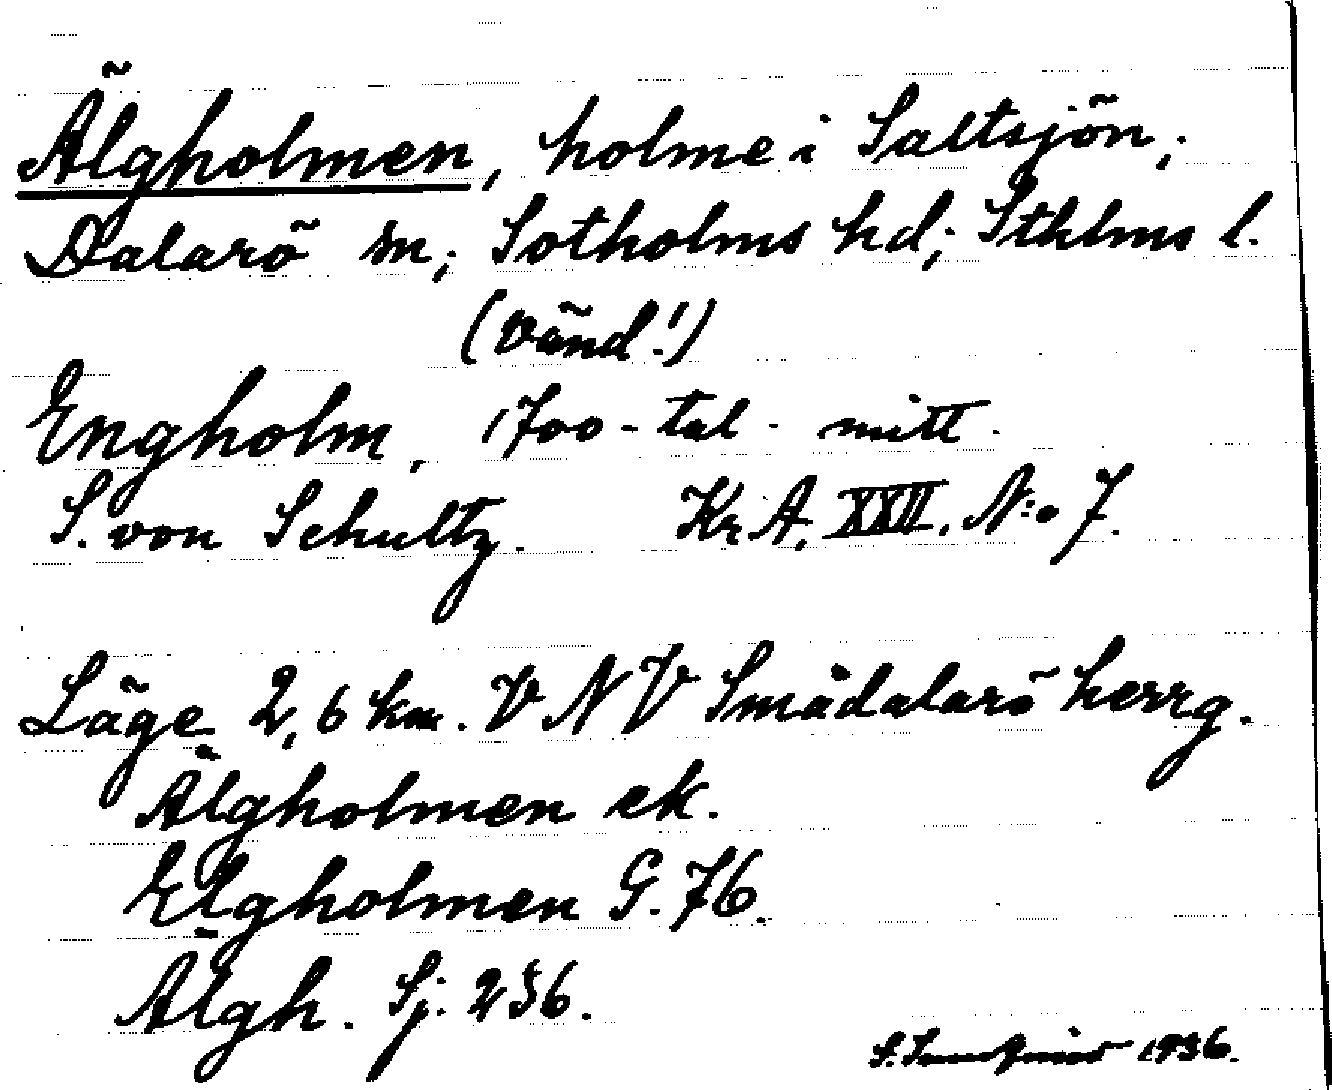 Älgholmen, holme i Saltsjön,
Dalarö sn; Sotholms hd; Sthlms l.
(Vänd!)
Engholm, 1700-tal. mitt.
S. von Schultz. Kr. A. XXII. N:o 7.
Läge 2,6 km. V N V Smådalarö herrg.
Älgholmen ek.
Elgholmen G. 76.
Älgh. Sj. 236.
1936.